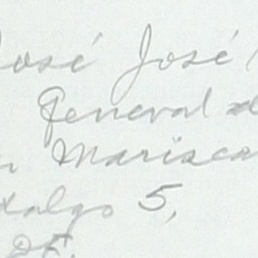 José José
General d
n Marisca
dalgo 5,
DF.